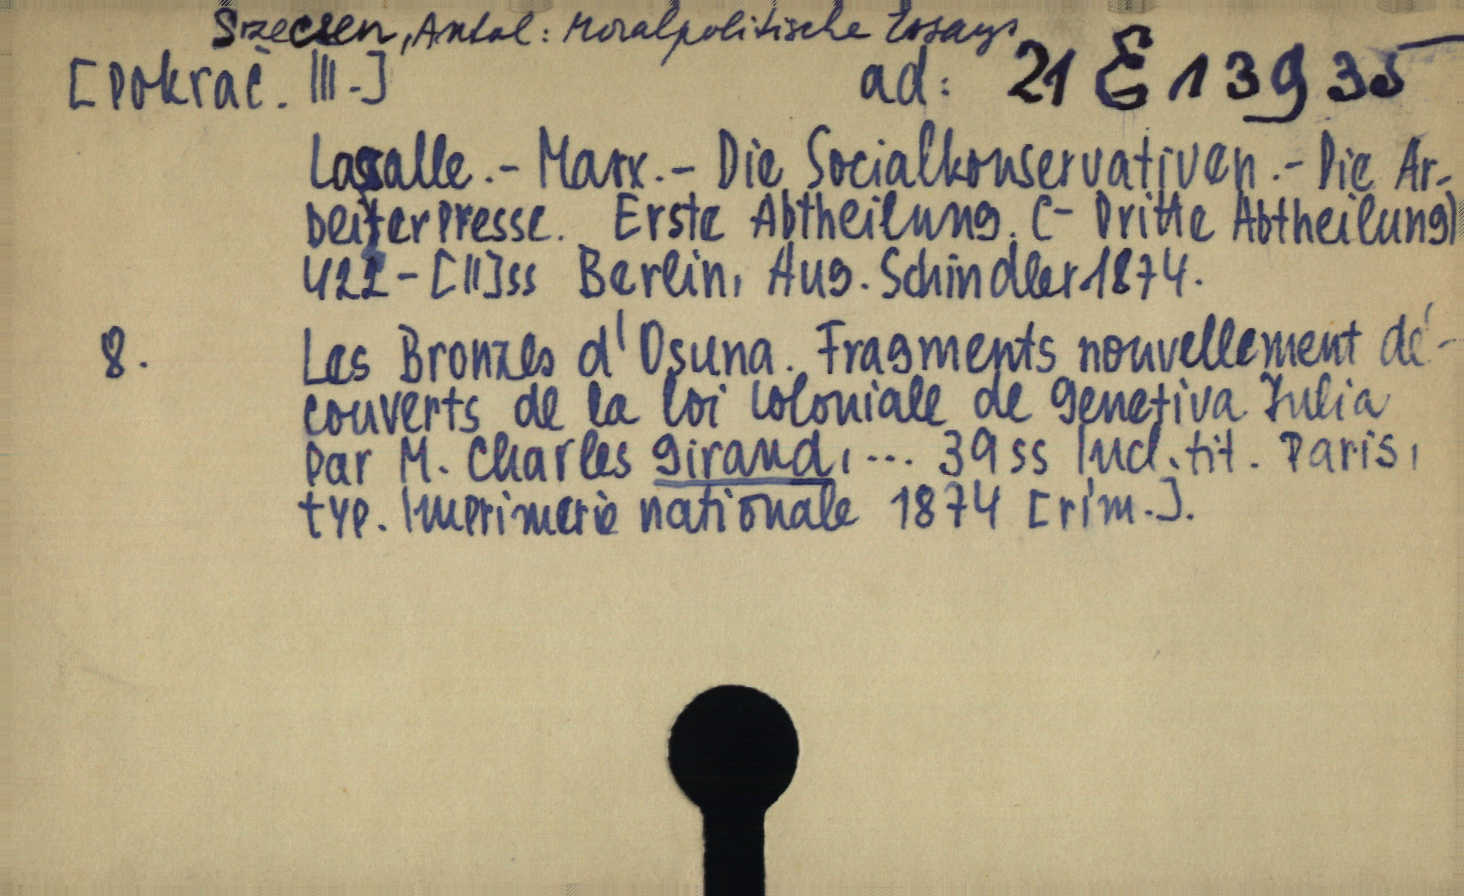 Szecsen, Antal: Moralpolitische Essays
[Pokrač. III.] ad: 21 E 13935
Lassalle.- Marx.- Die Socialkonservativen.- Die Ar-
beiterpresse. Erste Abtheilung. (- Dritte Abtheilung)
422 - [II] ss Berlin, Aug. Schindler 1874.
8. Les Bronzes d'Osuna. Fragments nouvellement dé-
couverts de la loi coloniale de Genetiva Julia
par M. Charles Giraud, ... 39 ss Incl. tit. Paris,
typ. Imprimerie nationale 1874 [rím.].